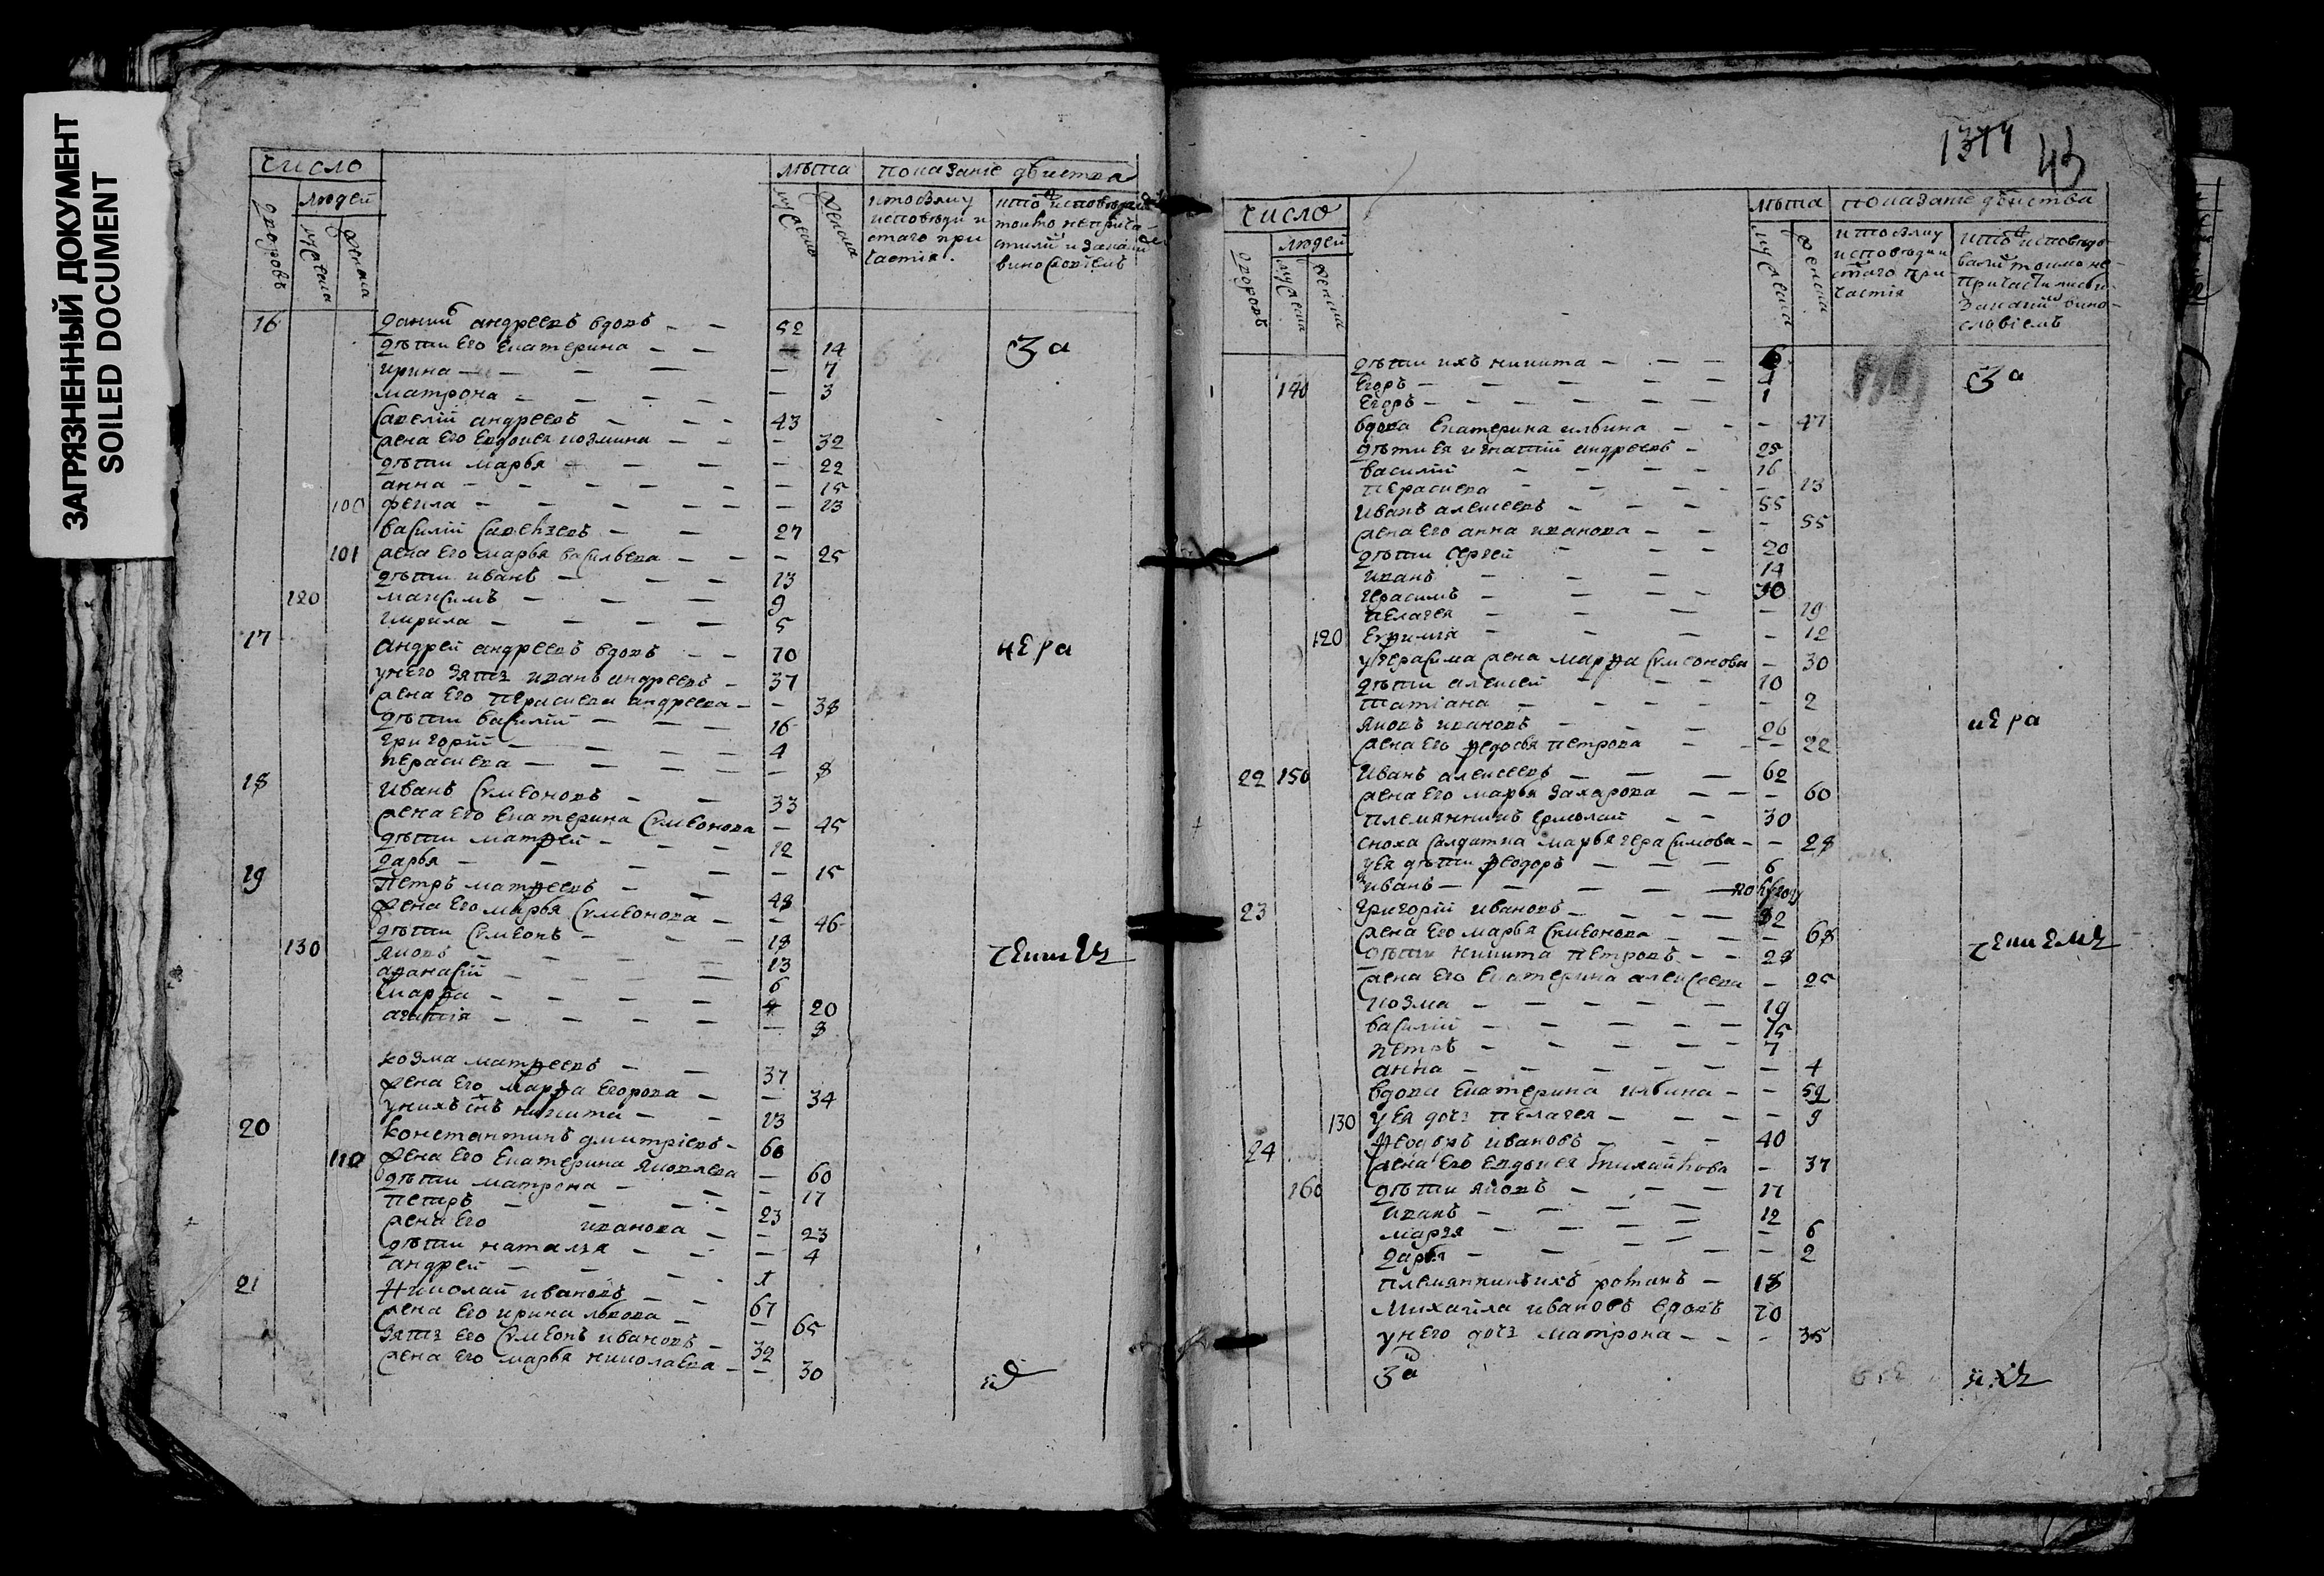 ЗАГРЯЗНЕННЫЙ ДОКУМЕНТ
SOILED DOCUMENT
число
людей
дворовъ
мужеска
женска
лѣта
мужеска
женска
показание дѣиства
кто былъ у исповѣди и стаго причастія.
16 данила андреевъ вдовъ 52
дѣти его екатерина 14
ирина 7
матрона 3
савелій андреевъ 43
жена его евдокея козмина 32
дѣти марья 22
анна 15
100 фекла 13
василій савельевъ 27
101 жена его марья васильева 25
дѣти иванъ 13
120 максимъ 9
кирила 5
17 андрей андреевъ вдовъ 70
у него зять иванъ андреевъ 37
жена его параскева андреева 38
дѣти василій 16
григорій 4
параскева 8
18 иванъ симеоновъ 33
жена его екатерина симеонова 45
дѣти матфей 12
дарья 15
19 петръ матфеевъ 48
жена его марья симеонова 46
дѣти симеонъ 18
130 яковъ 13
афанасій 6
марфа 20
агапія 8
козма матфеевъ 37
жена его марфа егорова 34
у нихъ снъ никита 13
20 константинъ дмитріевъ 60
110 жена его екатерина яковлева 60
дѣти матрона 17
петръ 23
жена его иванова 23
дѣти наталья 4
андрей 1
21 николай ивановъ 67
жена его ирина львова 65
зять его симеонъ ивановъ 32
жена его марья николаева 30
за
чера
1377
43
число
людей
дворовъ
мужеска
женска
лѣта
мужеска
женска
показание дѣиства
кто былъ у исповѣди и стаго причастія
дѣти ихъ никита 6
140 егоръ
егоръ 1
вдова екатерина ильина 47
дѣти ея игнатій андреевъ 25
василій 16
параскева 13
иванъ алексеевъ 55
жена его анна иванова 55
дѣти сергей 20
иванъ 14
герасимъ 30
пелагея 19
120 евфимія 12
у герасима жена марфа симеонова 30
дѣти алексей 10
татіана 2
яковъ ивановъ 26
жена его федосья петрова 22
22 150 иванъ алексеевъ 62
жена его марья захарова 60
племянникъ ермолай 30
сноха салдатка марья герасимова 28
у ея дѣти феодоръ 6
иванъ полугоду
23 григорій ивановъ 82
жена его марья симеонова 68
дѣти никита петровъ 28
жена его екатерина алексеева 25
козма 19
василій 15
петръ 7
анна 4
вдова екатерина ильина 59
130 у ея дочь пелагея 9
24 феодоръ ивановъ 40
жена его евдокея михайлова 37
160 дѣти яковъ 17
иванъ 12
марья 6
дарья 2
племянникъ ихъ романъ 18
михайла ивановъ вдовъ 70
у него дочь матрона 35
за
за